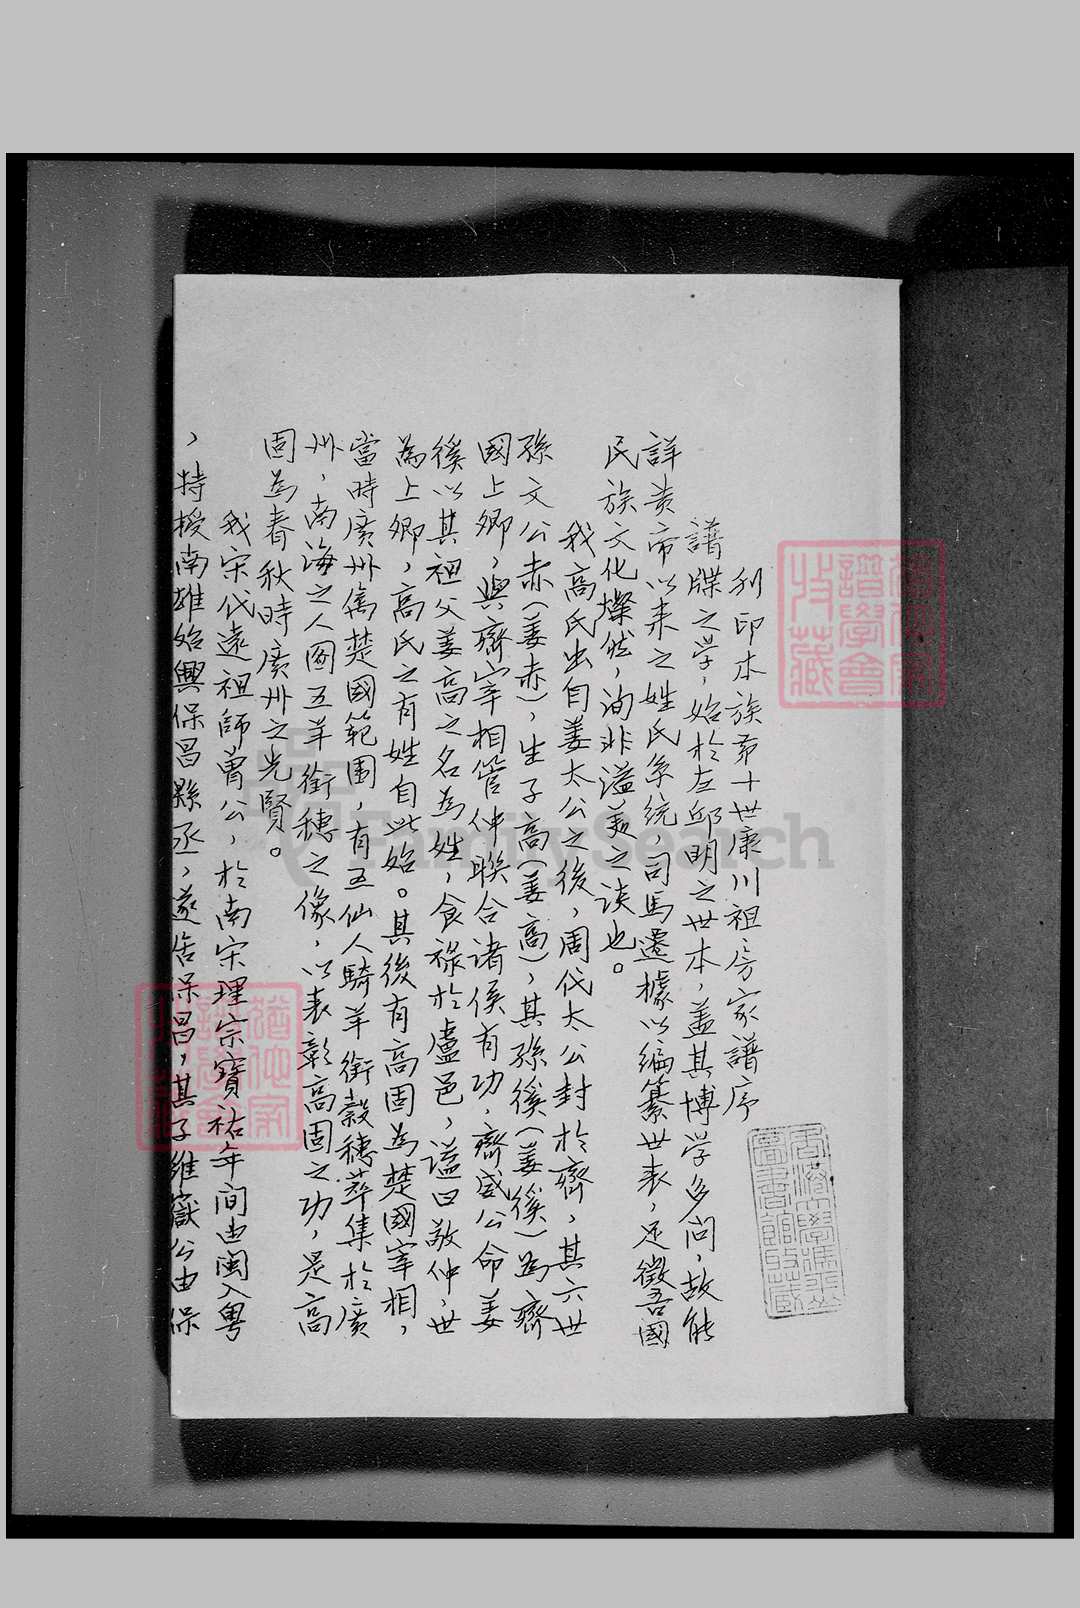 刊印本族第十世康川祖房家譜序
譜牒之学，始於左邱明之世本，盖其博学多问，故能
詳黄帝以来之姓氏系统，司馬遷據以编纂世表，足徵吾國
民族文化燦然，洵非溢美之谈也。
我高氏出自姜太公之後，周代太公封於齊，其六世
孫文公赤(姜赤)，生子高(姜高)，其孫徯(姜徯)為齊
國上卿，與齊宰相管仲聯合诸侯有功，齊威公命姜
徯以其祖父姜高之名為姓，食禄於盧邑，谥曰敬仲，世
為上卿，高氏之有姓自此始。其後有高固為楚國宰相，
當時廣州屬楚國範围，有五仙人騎羊銜穀穗萃集於廣
州，南海之人图五羊銜穗之像，以表彰高固之功，是高
固為春秋時廣州之先賢。
我宋代遠祖師曾公，於南宋理宗寶祐年间由闽入粤
，特授南雄始興保昌縣丞，遂居保昌，其子維嶽公由保
譜學會
收藏
FamilySearch